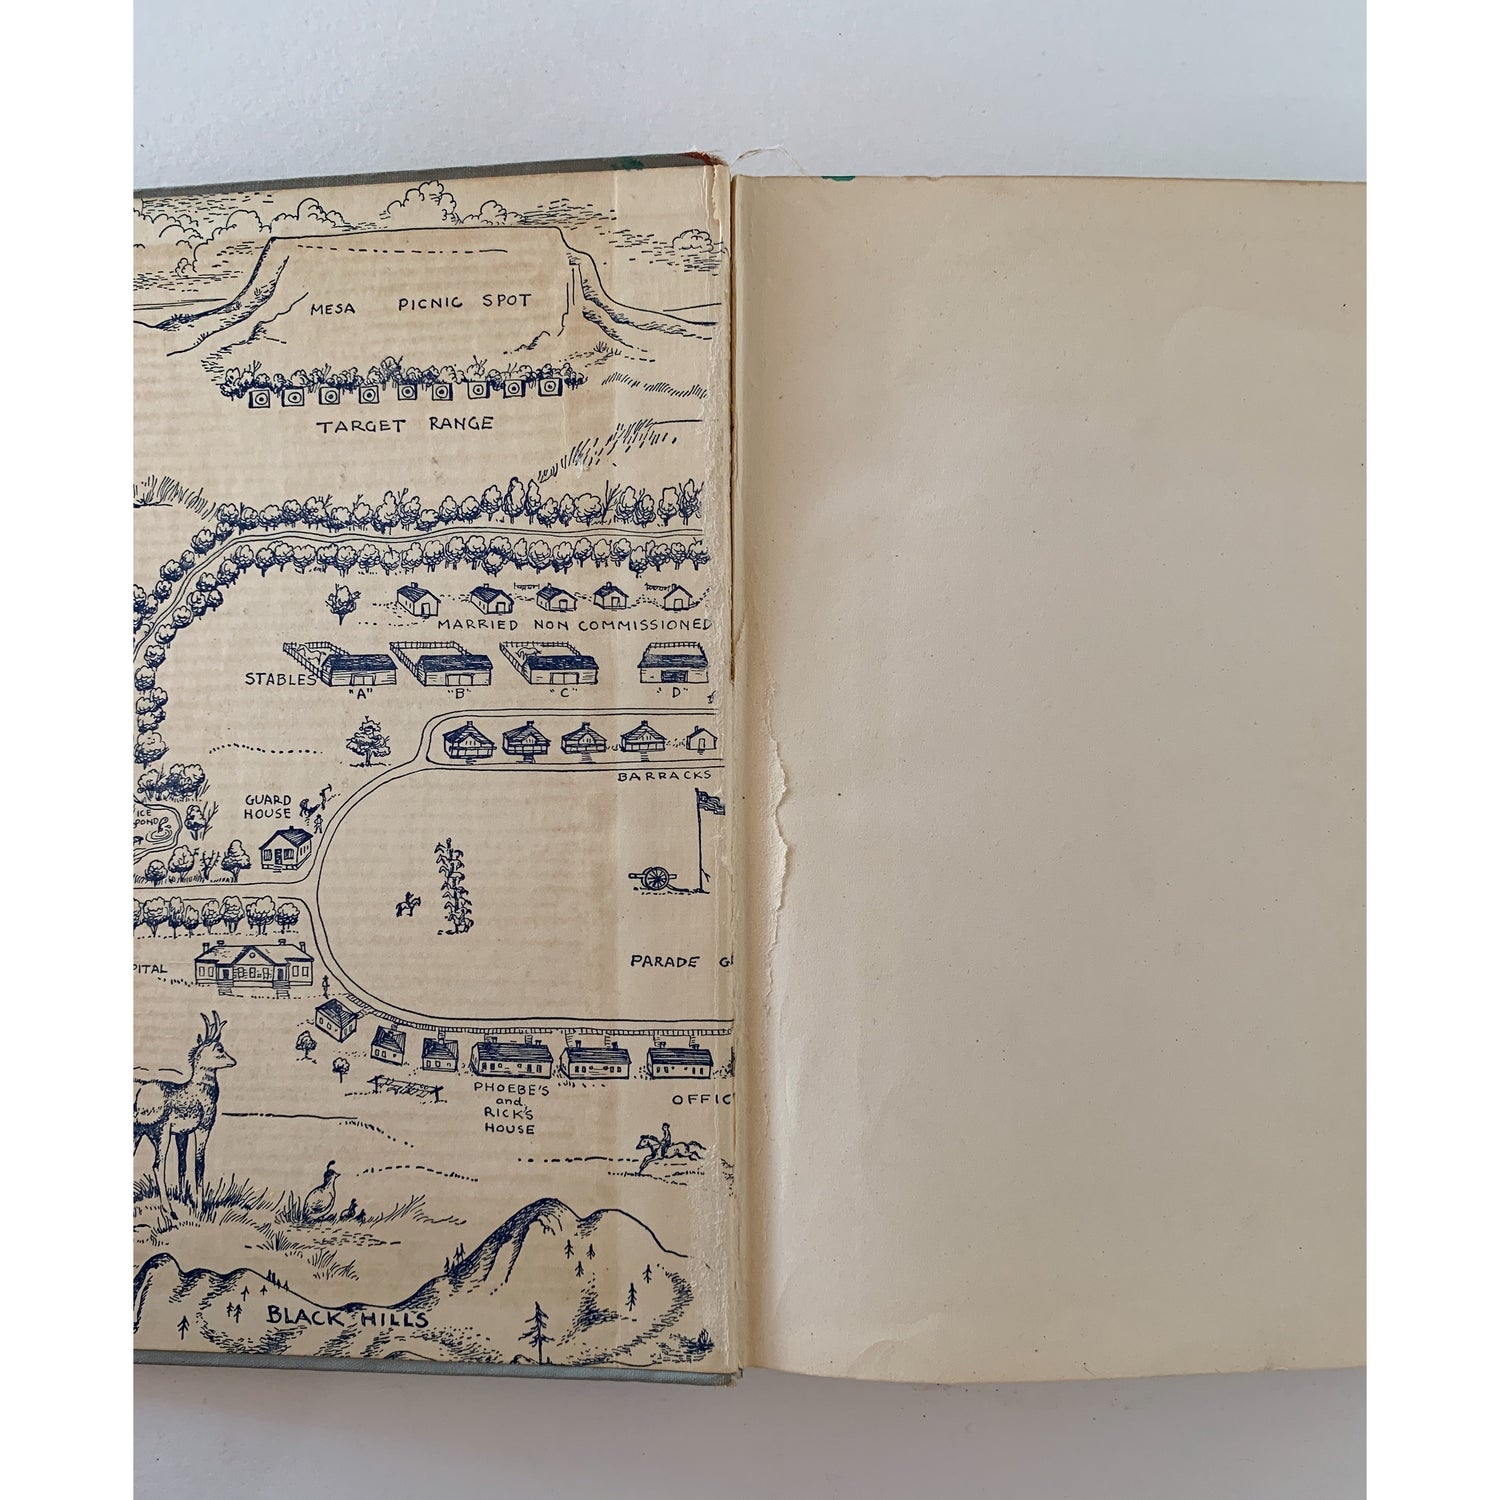 MESA PICNIC SPOT
TARGET RANGE
MARRIED NON COMMISSIONED
STABLES
"A" "B" "C" "D"
BARRACKS
GUARD
HOUSE
ICE
POND
PITAL
PARADE G
PHOEBE'S
and
RICK'S
HOUSE
OFFIC
BLACK HILLS